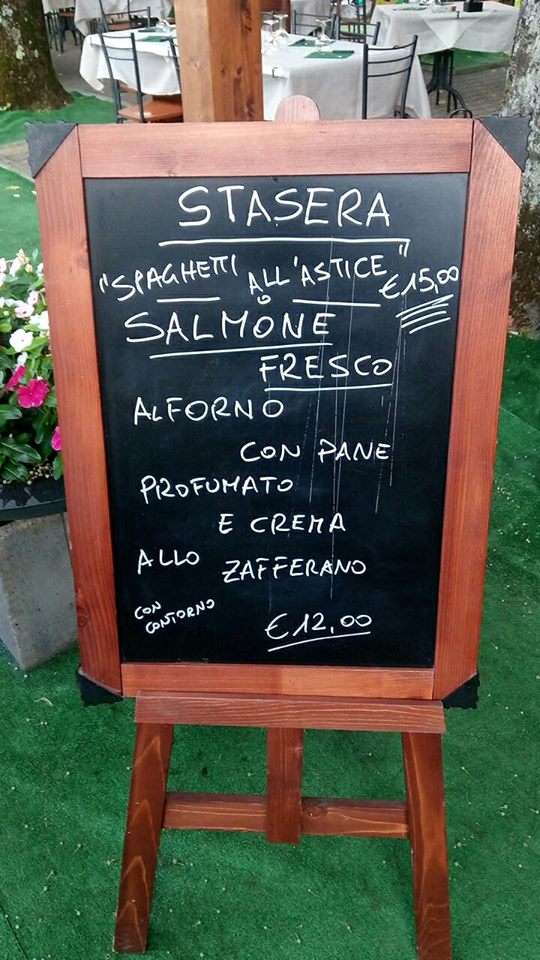 STASERA
"SPAGHETTI ALL'ASTICE" €15,00
SALMONE
FRESCO
AL FORNO
CON PANE
PROFUMATO
E CREMA
ALLO ZAFFERANO
CON
CONTORNO
€12,00